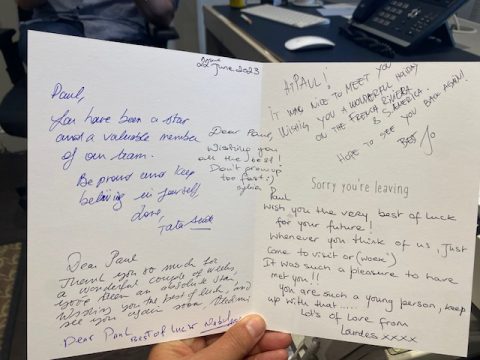 22 June 2023
Paul,
You have been a star
and a valuable member
of our team.
Be proud and keep
believing in yourself
Love,
Dear Paul,
Wishing you
all the best!
Don't grow up
too fast :)
Dear Paul
Thank you so much for
a wonderful couple of weeks,
you've been an absolute star.
Wishing you the best of luck, and
see you again soon,
Dear Paul Best of luck
PAUL!
IT WAS NICE TO MEET YOU
WISHING YOU A WONDERFUL HOLIDAY
ON THE FRENCH RIVIERA
& S. AMERICA.
HOPE TO SEE YOU BACK AGAIN!
BEST Jo
Sorry you're leaving
Paul
Wish you the very, best of luck
for your future!
Whenever you think of us, Just
come to visit or (work)
It was such a pleasure to have
met you!!
You are such a young person, keep
up with that
Lot's of Love from
Lourdes xxxx